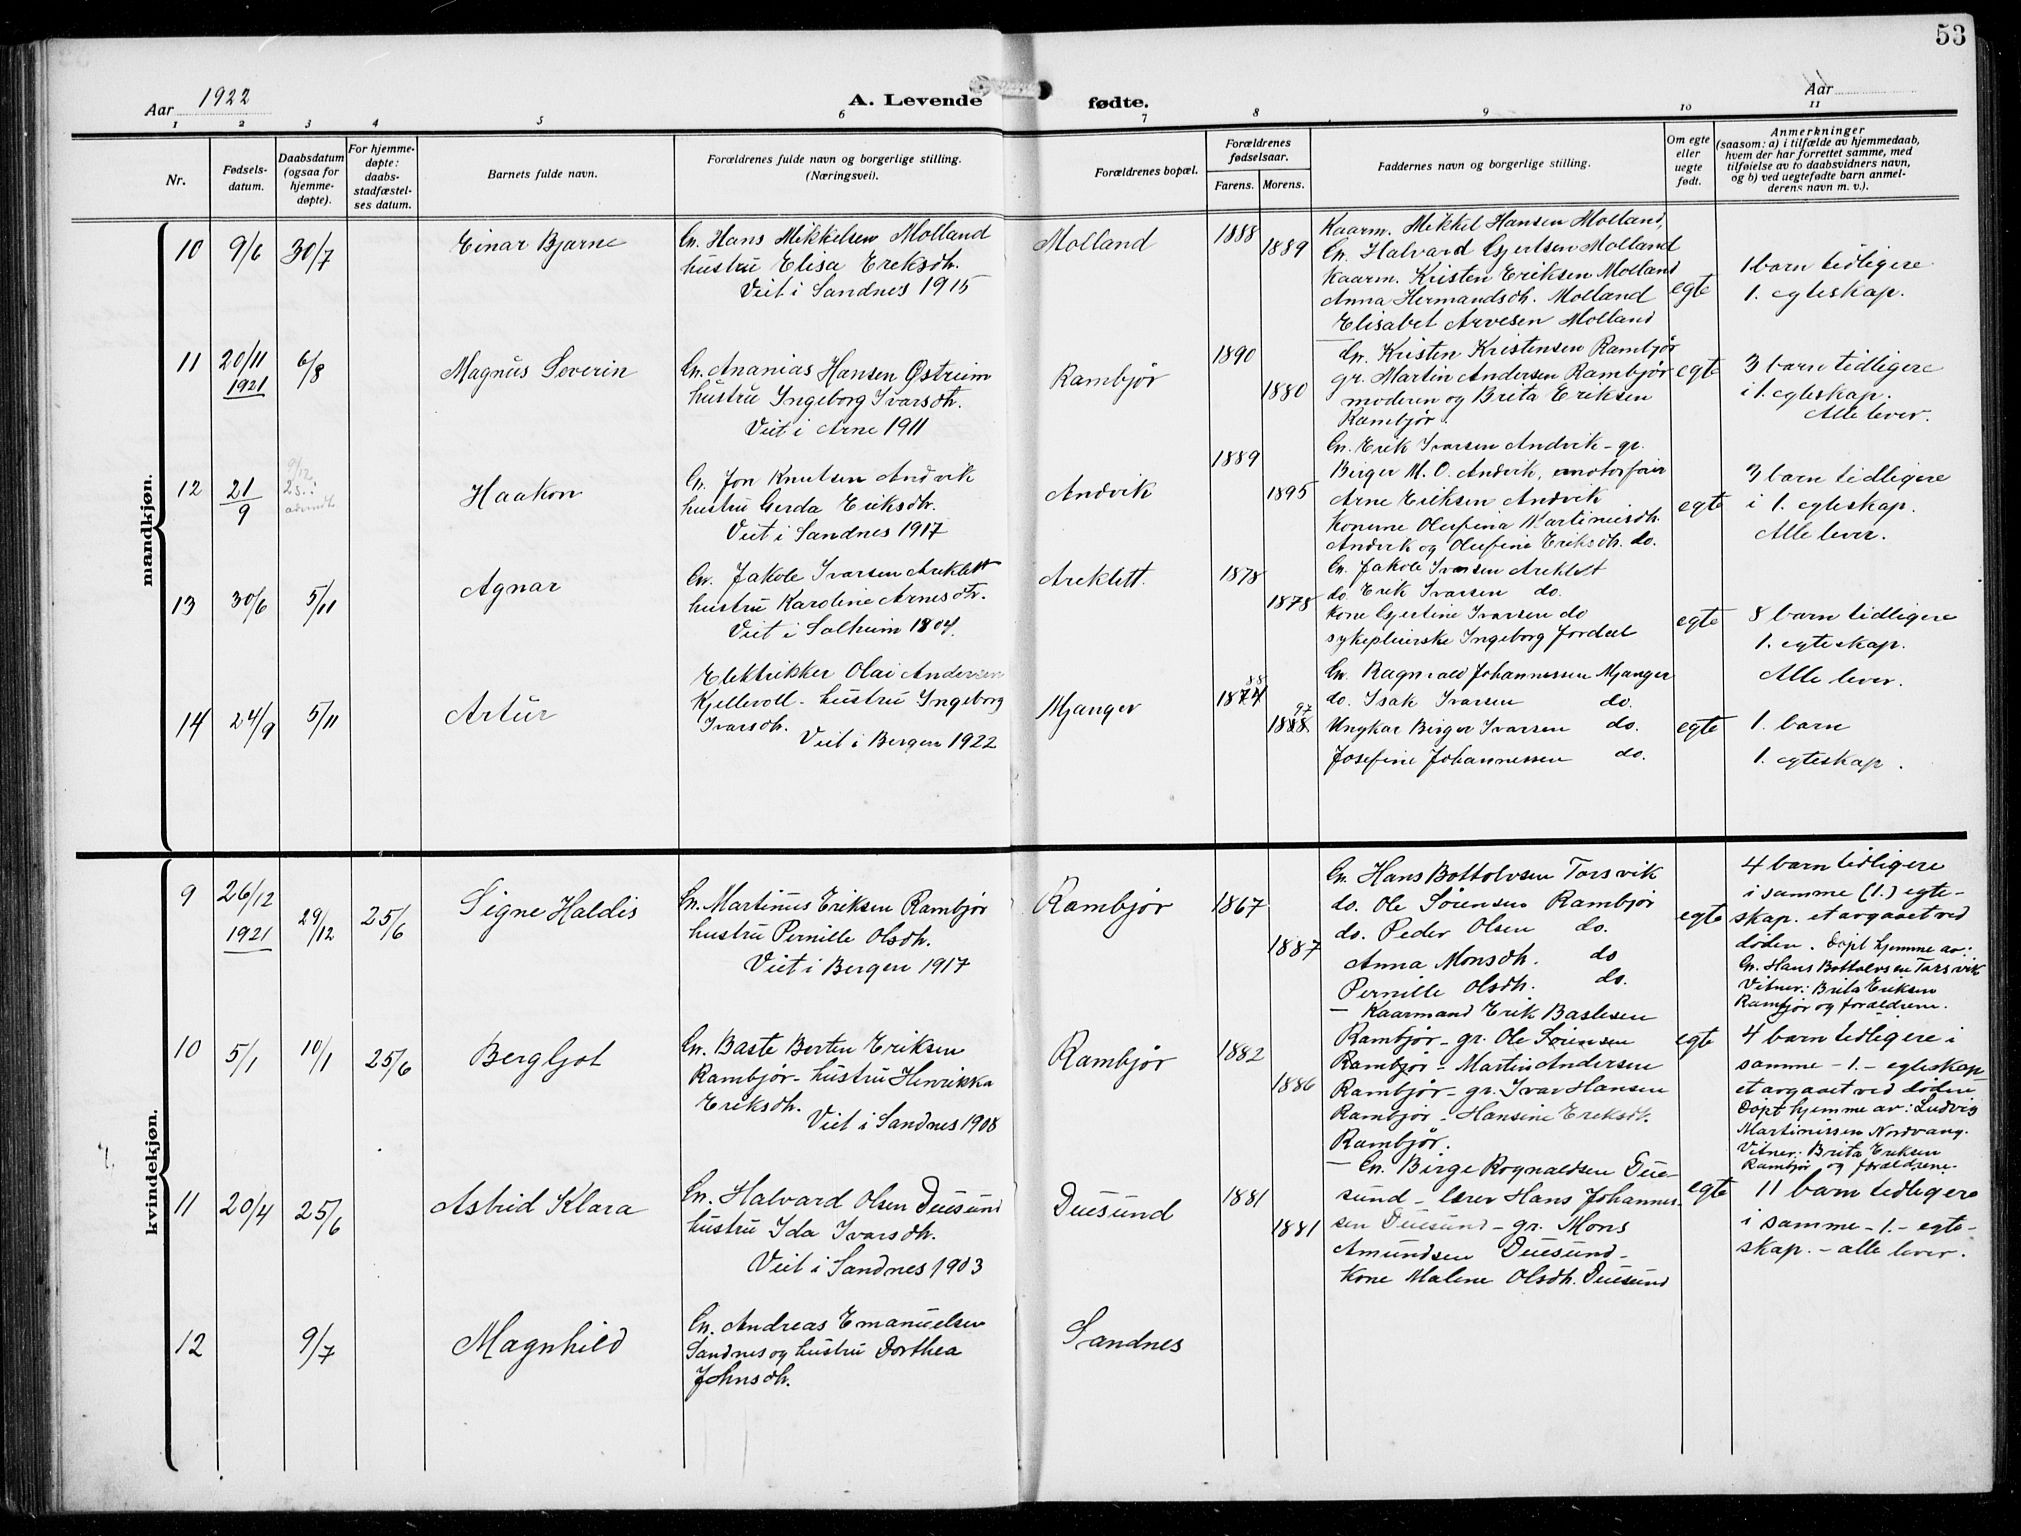 53
Aar 1922
A. Levende fødte.
Aar
1 2 3 4 5 6 7 8 9 10 11
Nr.
Fødsels-
datum.
Daabsdatum
(ogsaa for
hjemme-
døpte).
For hjemme-
døpte:
daabs-
stadfæstel-
ses datum.
Barnets fulde navn.
Forældrenes fulde navn og borgerlige stilling.
(Næringsvei).
Forældrenes bopæl.
Forældrenes
fødselsaar.
Farens. Morens.
Faddernes navn og borgerlige stilling.
Om egte
eller
uegte
født.
Anmerkninger
(saasom: a) i tilfælde av hjemmedaab,
hvem der har forrettet samme, med
tilføielse av to daabsvidners navn,
og b) ved uegtefødte barn anmel-
derens navn m. v.).
mandkjøn.
10 9/6 30/7
Einar Bjarne
Gn. Hans Mikkelsen Molland
hustru Elisa Ereksdtr.
Viet i Sandnes 1915
Molland
1888
1889
Kaarm. Mikkel Hansen Molland,
Gn. Halvard Gjertsen Molland
Kaarm. Kristen Eriksen Molland
Anna Hermandsdtr. Molland
Elisabet Arvesen Molland
egte
1 barn tidligere
1. egteskap.
11 20/11 1921 6/8
Magnus Severin
Gn. Ananias Hansen Østrum
hustru Ingeborg Ivarsdtr.
Viet i Arne 1911
Rambjør
1890
1880
Gn. Kristen Kristensen Rambjør
gr. Martin Andersen Rambjør
moderen og Brita Eriksen
Rambjør.
egte
3 barn tidligere
i 1. egteskap.
Alle lever.
12 21/9
Haakon
Gn. Jon Knutsen Andvik
hustru Gerda Eriksdtr.
Viet i Sandnes 1917
Andvik
1889
1895
Gn. Erik Ivarsen Andvik - gr.
Birger M. O. Andvik, motorfører
Arne Eriksen Andvik
Konerne Olufina Martinusdtr.
Andvik og Olufine Eriksdtr. do.
egte
3 barn tidligere
i 1. egteskap.
Alle lever.
13 30/6 5/11
Agnar
Gn. Jakob Ivarsen Areklett
hustru Karoline Arnesdtr.
Viet i Solheim 1904.
Areklett.
1878
1878
Gn. Jakob Ivarsen Areklett
do. Erik Ivarsen do.
Kone Gjertine Ivarsen do
sykepleierske Ingeborg Jordal
egte
8 barn tidligere
1. egteskap.
Alle lever.
14 24/9 5/11
Artur
Elektrikker Olai Andersen
Kjellevoll - hustru Ingeborg
Ivarsdtr.
Viet i Bergen 1922
Mjanger
1874 88
1888 97
Gn. Ragnvald Johannessen Mjanger
do. Isak Ivarsen do.
Ungkar Birger Ivarsen do.
Josefine Johannessen do.
egte
1. barn
1. egteskap.
kvindekjøn.
9 26/12 1921 29/12 25/6
Signe Haldis
Gn. Martinus Eriksen Rambjør
hustru Pernille Olsdtr.
Viet i Bergen 1917
Rambjør
1867
1887
Gn. Hans Bottolvsen Torsvik
do. Ole Sørensen Rambjør
do. Peder Olsen do.
Anna Monsdtr. do
Pernille Olsdtr. do.
egte
4 barn tidligere
i samme (1.) egte-
skap. et avgaaet ved
døden. Døpt hjemme av:
Gn. Hans Bottolvsen Torsvik
Vitner: Brita Eriksen
Rambjør og forældrene.
10 5/1 10/1 25/6
Bergljot
Gn. Baste Berten Eriksen
Rambjør - hustru Henrikka
Eriksdtr.
Viet i Sandnes 1908
Rambjør
1882
1886
- Kaarmand Erik Bastesen
Rambjør - gr. Ole Sørensen
Rambjør - Martin Andersen
Rambjør - gr. Ivar Hansen
Rambjør - Hansine Eriksdtr.
Rambjør.
egte
4 barn tidligere i
samme - 1. - egteskap
et avgaaet ved døden
Døpt hjemme av: Ludvig
Martinissen Nordvang.
Vitner: Brita Eriksen
Rambjør og forældrene.
11 20/4 25/6
Astrid Klara
Gn. Halvard Olsen Duesund
hustru Ida Ivarsdtr.
Viet i Sandnes 1903
Duesund
1881
1881
- Gn. Birge Rognaldsen Due-
sund - lærer Hans Johannes-
sen Duesund - gr. Mons
Amundsen Duesund -
Kone Malene Olsdtr. Duesund
egte
11 barn tidligere
i samme - 1. - egte-
skap. - alle lever.
12 9/7
Magnhild
Gn. Andreas Emanuelsen
Sandnes og hustru Dorthea
Johnsdtr.
Sandnes